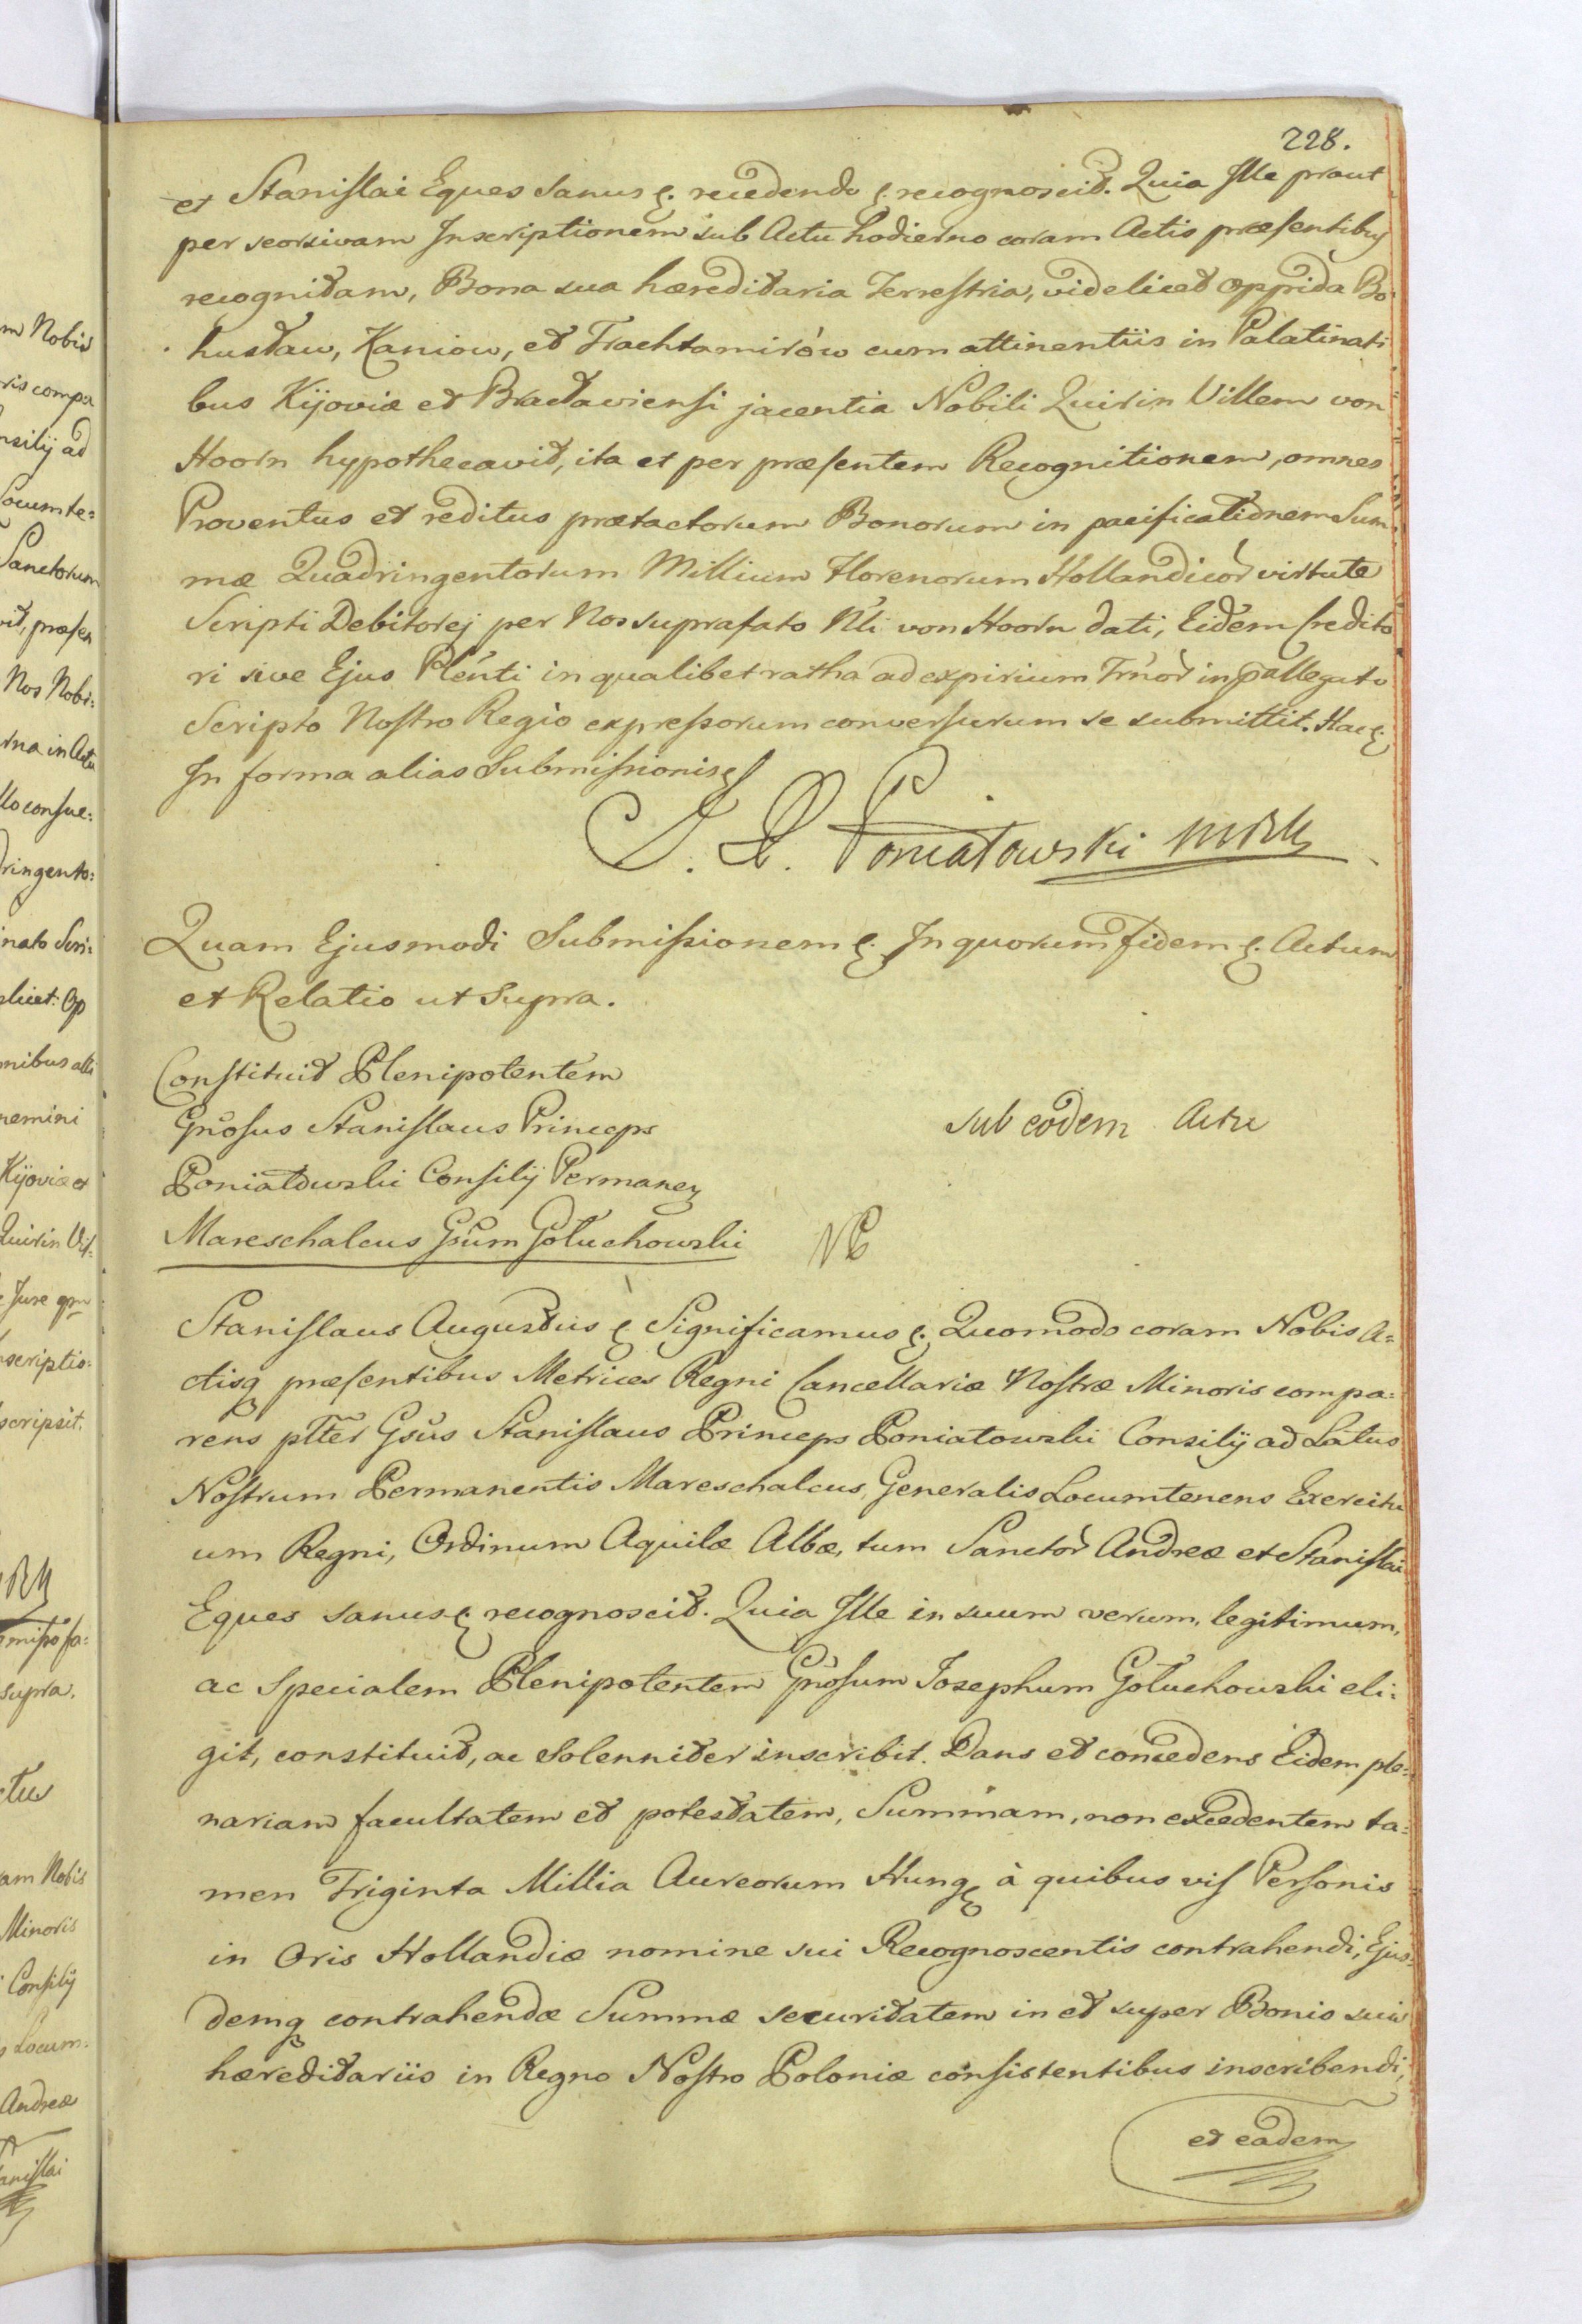 228.
et Stanislai Eques Sanus &. recedendo &. recognoscit. Quia Ille prout
per seorsivam Inscriptionem sub Actu hodierno coram Actis præsentibus
recognitam, Bona sua hæreditaria Terrestria, videlicet Oppida Bo
husław, Kaniow, et Trachtamirów cum attinentiis in Palatinati
bus Kijoviæ et Bracłaviensi jacentia Nobili Quirin Villem von
Hoorn hypothecavit, ita et per præsentem Recognitionem, omnes
Proventus et reditus prætactorum Bonorum in pacificationem Sum
mæ Quadringentorum Millium Florenorum Hollandicor virtute
Scripti Debitorej per Nos suprafato Nli von Hoorn dati, Eidem Credito
ri sive Ejus Plenti in qualibet ratha ad expirium Trnor in pallegato
Scripto Nostro Regio expressorum conversurum se submittit. Hac &
In forma alias Submissionis &
S. P. Poniatowski MRN
Quam Ejusmodi Submissionem &. In quorum fidem &. Actum
et Relatio ut Supra.
Constituit Plenipotentem
Gnosus Stanislaus Princeps
Poniatowski Consilij Permanen
Mareschalcus Gsum Gołuchowski
sub eodem Actu
Stanislaus Augustus & Significamus &. Quomodo coram Nobis A=
ctisq præsentibus Metrices Regni Cancellariæ Nostræ Minoris compa=
rens plter Gsus Stanislaus Princeps Poniatowski Consilij ad Latus
Nostrum Permanentis Mareschalcus, Generalis Locumtenens Exercitu
um Regni, Ordinum Aquilæ Albæ, tum Sanctor Andreæ et Stanislai
Eques sanus &. recognoscit. Quia Ille in suum verum, legitimum,
ac Specialem Plenipotentem Gnosum Josephum Gołuchowski eli=
git, constituit, ac Solenniter inscribit. Dans et concedens Eidem ple=
nariam facultatem et potestatem, Summam, non excedentem ta=
men Triginta Millia Aureorum Hung & à quibus vis Personis
in Oris Hollandiæ nomine sui Recognoscentis contrahendi, Ejus=
demq contrahendæ Summæ securitatem in et super Bonis suis
hæreditariis in Regno Nostro Poloniæ consistentibus inscribendi,
et eadem